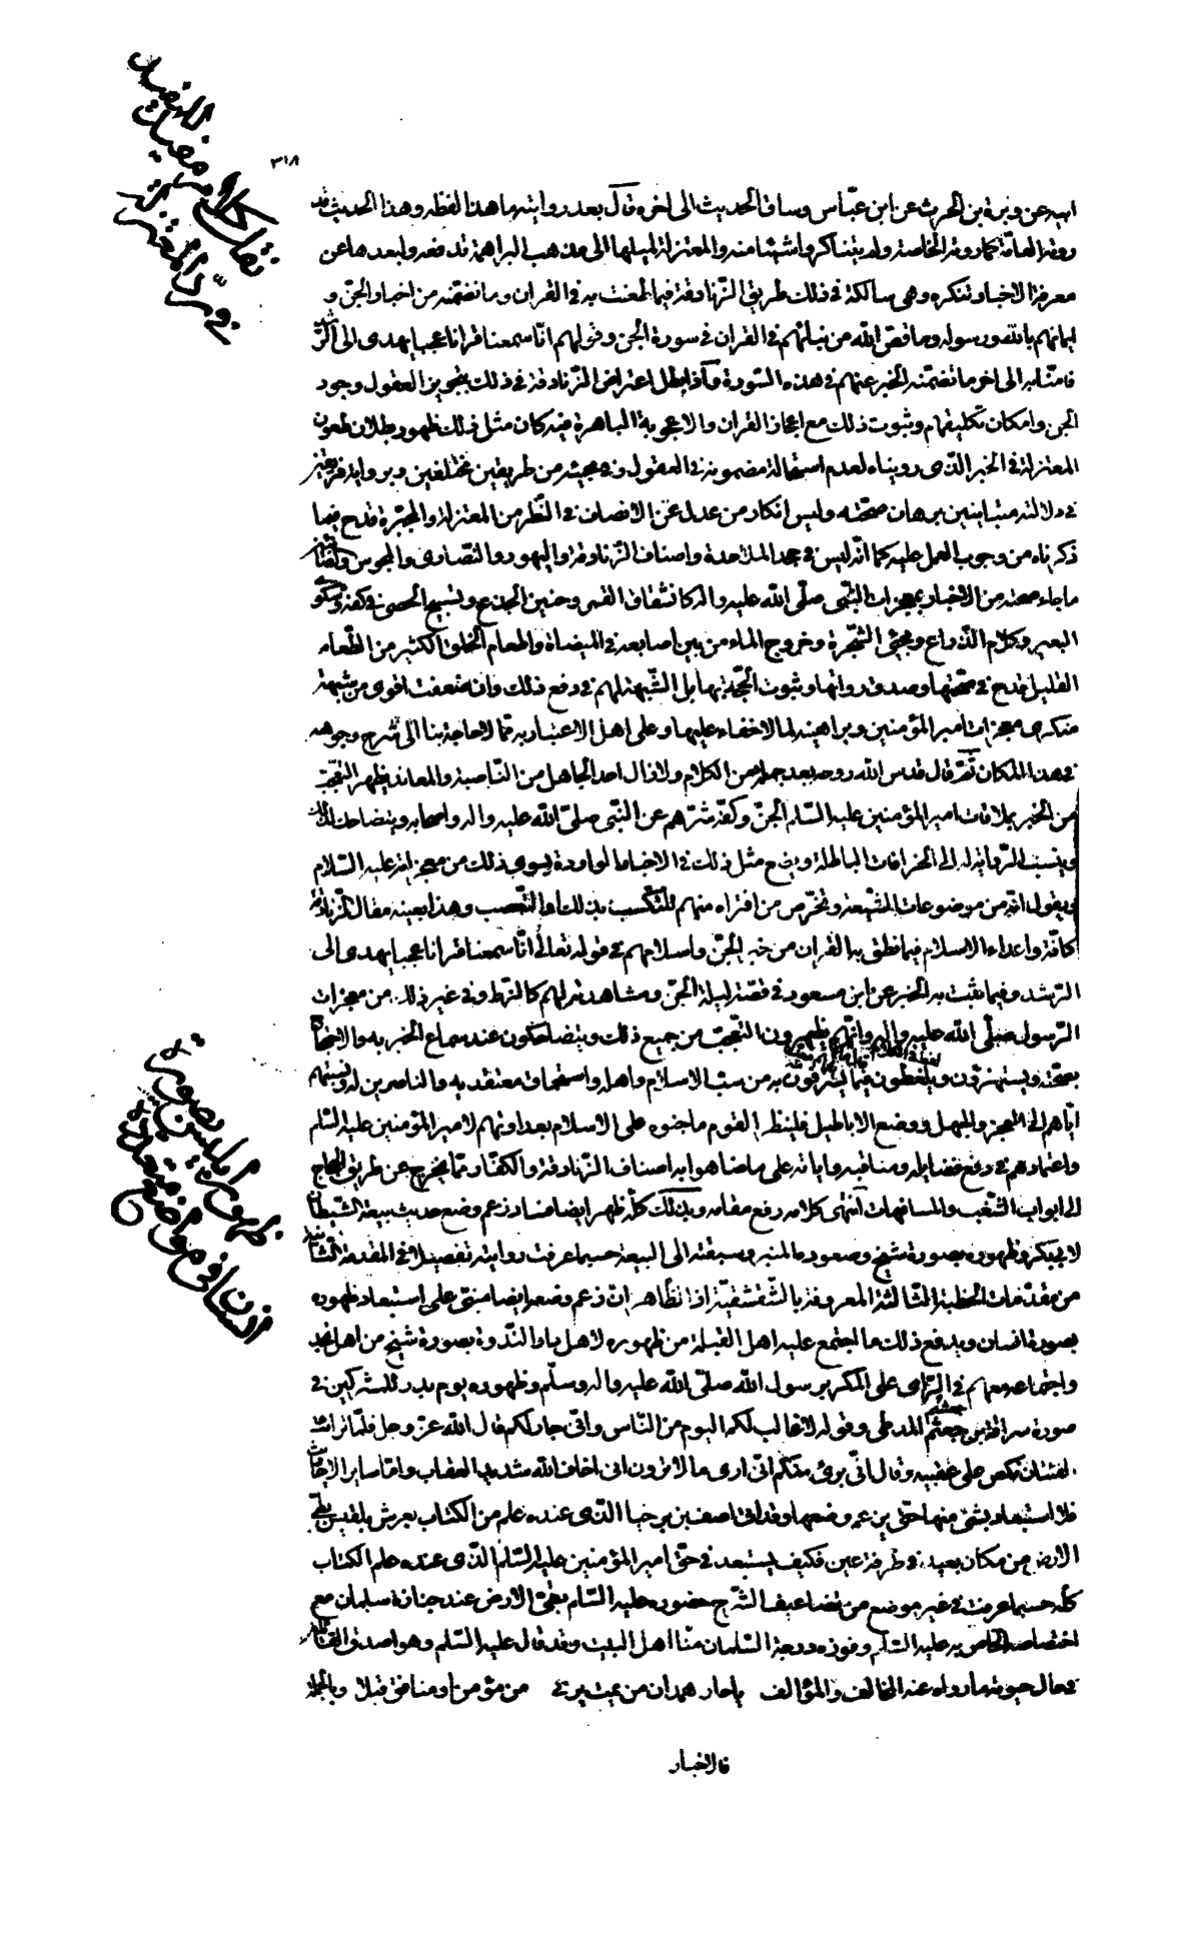 ٣١٨
ابيه عن وبرة بن الحرث عن ابن عبّاس وساق الحديث الى اخره قال بعد روايته ما هذا لفظه وهذا الحديث قد
روته العامّة كما روته الخاصة ولم يتناكروا شيئا منه والمعتزلة لميلها الى مذهب البراهمة تدفعه ولبعدها عن
معرفة الاخبار تنكره وهى سالكة فى ذلك طريق الزنادقة فيما طعنت به فى القران وما تضمّنه من اخبار الجنّ و
ايمانهم بالله ورسوله وما قصّ الله من نبائهم فى القران فى سورة الجن وقولهم انّا سمعنا قرانا عجبا يهدى الى الرّشد
فامنّا به الى اخر ما تضمّنه الخبر عنهم فى هذه السّورة واذا بطل اعتراض الزّنادقة فى ذلك بتجويز العقول وجود
الجن وامكان تكليفهم وثبوت ذلك مع اعجاز القران والاعجوبة الباهرة فيه كان مثل ذلك ظهور بطلان طعون
المعتزلة فى الخبر الّذى رويناه لعدم استحالة مضمونه فى العقول وفى مجيئه من طريقين مختلفين وبرواية فريقين
فى دلالته متباينين برهان صحّته وليس انكار من عدل عن الانصاف فى النّظر من المعتزلة والمجبّرة قدح فيما
ذكرناه من وجوب العمل عليه كما انّه ليس فى جحد الملاحدة واصناف الزّنادقة واليهود والنّصارى والمجوس والصّابئين
ما جاء صحته من الاخبار بمعجزات النّبى صلّى الله عليه واله كانشقاق القمر وحنين الجذع وتسبيح الحصى فى كفه وشكوى
البعير وكلام الذّراع ومجئ الشّجرة وخروج الماء من بين اصابعه فى الميضاة واطعام الخلق الكثير من الطّعام
القليل قدح فى صحّتها وصدق رواتها وثبوت الحجّة بها بل الشّبهة لهم فى دفع ذلك وان ضعفت اقوى من شبهة
منكرى معجزات امير المؤمنين وبراهينه لما لا خفاء عليها وعلى اهل الاعتبار به ممّا لا حاجة بنا الى شرح وجوهه
فى هذا المكان ثمّ قال قدس الله روحه بعد جملة من الكلام ولا زال اجد الجاهل من النّاصبة والمعاند يظهر التّعجّب
من الخبر بملاقات امير المؤمنين عليه السّلام الجنّ وكفّه شرّهم عن النّبى صلّى الله عليه واله واصحابه ويتضاحك لذلك
وينسب الرّواية له الى الخرافات الباطلة ويضع مثل ذلك فى الاخبار الواردة بسوى ذلك من معجزاته عليه السّلام
ويقول انّه من موضوعات الشّيعة وتخرّص من افتراه منهم للتكسّب بذلك او التّعصب وهذا بعينه مقال الزنادقة
كافّة واعداء الاسلام فيما نطق به القران من خبر الجنّ واسلامهم فى قوله تعالى انّا سمعنا قرانا عجبا يهدى الى
الرّشد وفيما ثبت به الخبر عن ابن مسعود فى قصّة ليلة الجنّ ومشاهدته لهم كالزّط وفى غير ذلك من معجزات
الرّسول صلّى الله عليه واله وانّهم يظهرون التّعجّب من جميع ذلك ويتضاحكون عند سماع الخبر به والاحتجاج
بصحّته ويستهزؤن ويلغطون فيما يسرفون به من سبّ الاسلام واهله واستحماق معتقديه والناصرين له ونسبتهم
ايّاهم الى العجز والجهل ووضع الاباطيل فلينظر القوم ما جنوه على الاسلام بعداوتهم لامير المؤمنين عليه السّلم
واعتمادهم فى دفع فضايله ومناقبه واياته على ما ضاهوا به اصناف الزّنادقة والكفّار ممّا يخرج عن طريق الحجاج
الى ابواب الشّغب والمسافهات انتهى كلامه رفع مقامه وبذلك كلّه ظهر ايضا فساد زعم وضع حديث بيعة الشّيطان
لابى بكر وظهوره بصورة شيخ وصعوده المنبر وسبقته الى البيعة حسبما عرفت روايته تفصيلا فى المقدمة الثّانية
من مقدّمات الخطبة الثّالثة المعروفة بالشّقشقيّة اذ الظّاهر انّ زعم وضعه ايضا مبنىّ على استبعاد ظهوره
بصورة انسان ويدفع ذلك ما اجتمع عليه اهل القبلة من ظهوره لاهل دار النّدوة بصورة شيخ من اهل نجد
واجتماعه معهم فى الرّاى على المكر برسول الله صلّى الله عليه واله وسلّم وظهوره يوم بدر للمشركين فى
صورة سراقة بن جعثم المدلجى وقوله لا غالب لكم اليوم من النّاس وانّى جار لكم قال الله عزّ وجل فلمّا ترائت
الفئتان نكص على عقبيه وقال انّى برئ منكم انّى ارى ما لا ترون انى اخاف الله شديد العقاب وامّا ساير الاخبار
فلا استبعاد بشئ منها حتّى يزعم وضعها وقد اتى اصف بن برخيا الّذى عنده علم من الكتاب بعرش بلقيس بطىّ
الارض من مكان بعيد فى طرفة عين فكيف يستبعد فى حقّ امير المؤمنين عليه السّلم الّذى عنده علم الكتاب
كلّه حسبما عرفت فى غير موضع من تضاعيف الشّرح حضوره عليه السّلم بطىّ الارض عند جنازة سلمان مع
اختصاصه الخاص به عليه السّلم وفوزه درجة السّلمان منّا اهل البيت وقد قال عليه السّلم وهو اصدق القائلين
فى حال حيوته ما رواه عنه المخالف والمؤالف يا حار همدان من يمت يرنى من مؤمن او منافق قبلا وبالجملة
فالاخبار
نقل كلام من للمفيد
فى ردّ المعتزلة
ظهور ابليس بصورة
انسان فى مواضع عديدة